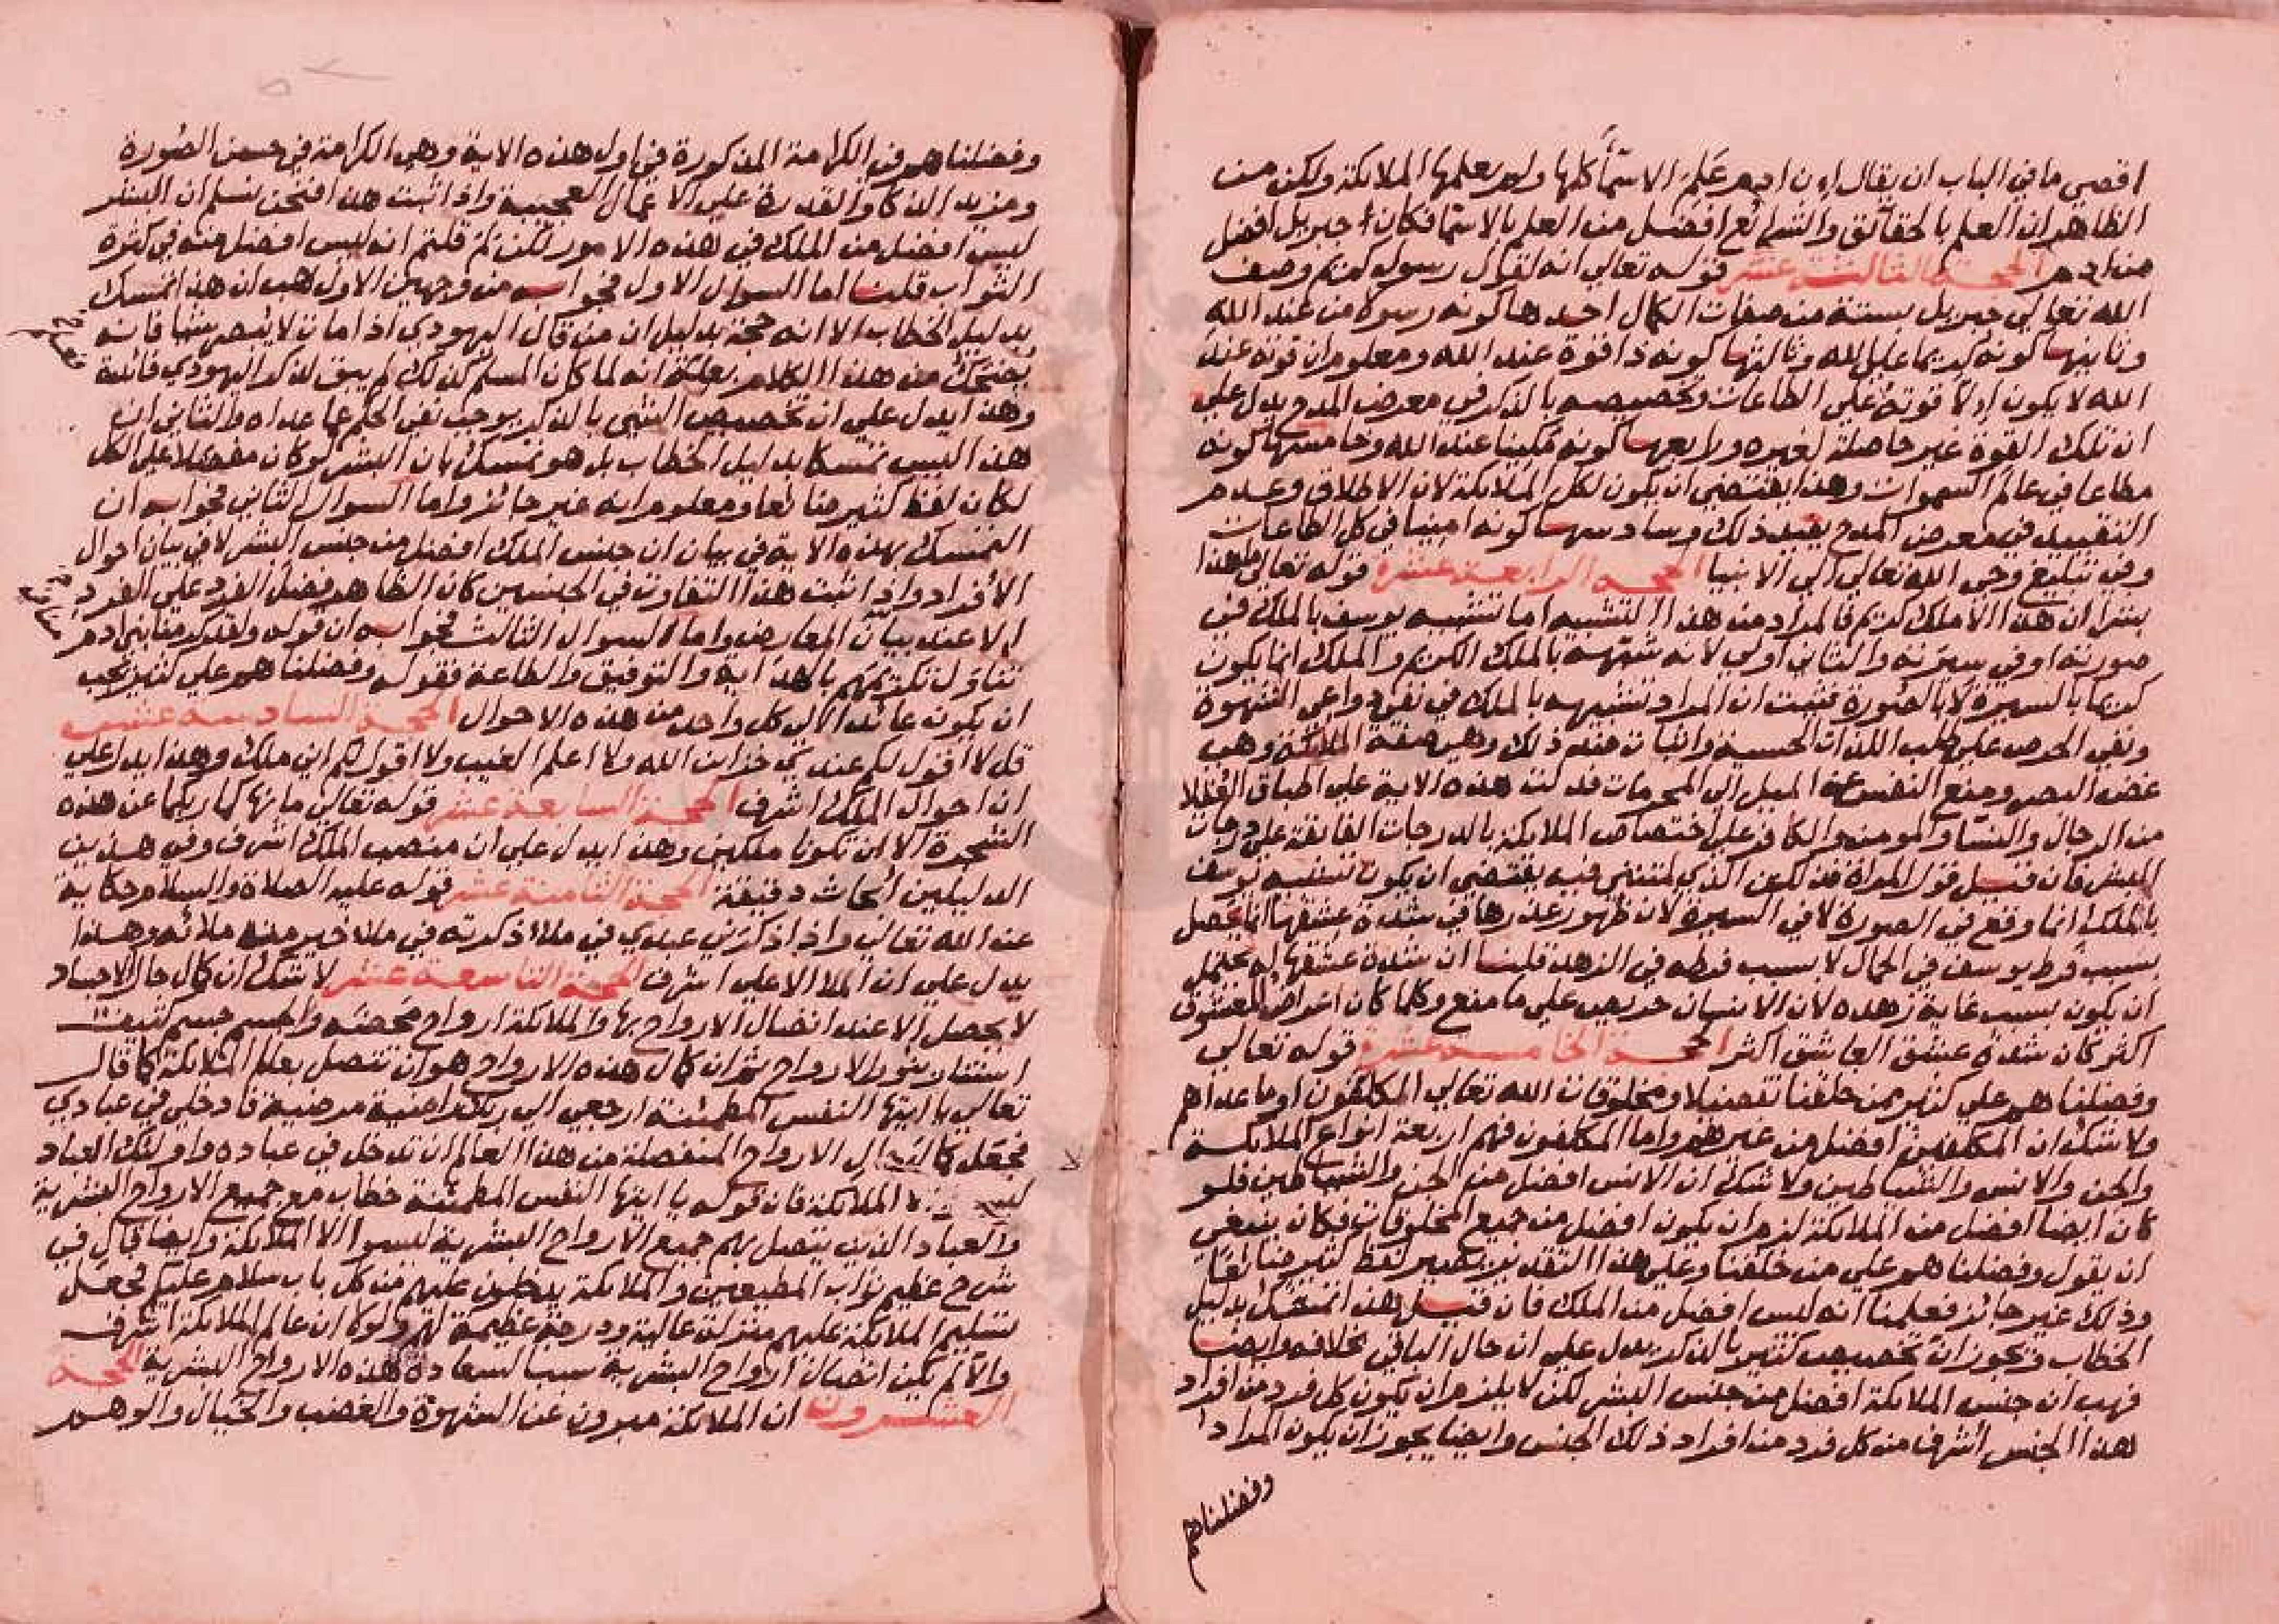 اقصي ما في الباب ان يقال ان ادم علم الاسمآ كلها ولم يعلمها الملايكة ولكن من
الظاهر ان العلم بالحقائق والشرائع افضل من العلم بالاسما فكان جبريل افضل
من ادم الحجة الثالثة عشر قوله تعالي انه لقول رسول كريم وصف
الله تعالي جبريل بستة من صفات الكمال احدها كونه رسولا من عند الله
وثانيها كونه كريما علي الله وثالثها كونه ذا قوة عند الله ومعلوم ان قوته عند
الله لا يكون الا قوته علي الطاعات وتخصيصه بالذكر في معرض المدح يدل علي
ان تلك القوة غير حاصلة لغيره ورابعها كونه مكينا عند الله وخامسها كونه
مطاعا في عالم السموات وهذا يقتضي ان يكون لكل الملايكة لان الاطلاق وعدم
التقييد في معرض المدح يفيد ذلك وسادسها كونه امينا في كل الطاعات
وفي تبليغ وحي الله تعالي الي الانبيا الحجه الرابعة عشرة قوله تعالي ما هذا
بشرا ان هذا الا ملك كريم فالمراد من هذا التشبيه اما تشبيه يوسف بالملك في
صورته او في سيرته والثاني اولي لانه شبهه بالملك الكريم والملك انما يكون
كريما بالسيرة لا بالصورة فثبت ان المراد تشبيهه بالملك في نفي دواعي الشهوة
ونفي الحرص علي طلب اللذات الحسية واثبات ضد ذلك وهي صفة الملايكة وهب
غض البصر ومنع النفس عن الميل الي المحرمات فدلت هذه الاية علي اطباق العقلا
من الرجال والنسا والمومن والكافر علي اختصاص الملايكة بالدرجات الفايقة علي درجات
البشر فان قيل قول المراة فذلكن الذي لمتنني فيه يقتضي ان يكون تشبيه يوسف
بالملك انما وقع في الصورة لا في السيرة لان ظهور عذرها في شدة عشقها انما يحصل
بسبب فرط يوسف في الجمال لا بسبب فرطه في الزهد قلنا ان شدة عشقها له يحتمل
ان يكون بسبب غاية زهده لان الانسان حريص علي ما منع وكلما كان اعراض المعشوق
اكثر كان شدة عشق العاشق اكثر الحجة الخامسة عشرة قوله تعالي
وفضلناهم علي كثير ممن خلقنا تفضيلا ومخلوقات الله تعالي المكلفون او ما عداهم
ولا شك ان المكلفين افضل من غيرهم واما المكلفون فهم اربعة انواع الملايكة
والجن والانس والشياطين ولا شك ان الانس افضل من الجن والشياطين فلو
كان ايضا افضل من الملايكة لزم ان يكون افضل من جميع المخلوقات فكان ينبغي
ان يقول وفضلناهم علي من خلقنا وعلي هذا التقدير يصير لفظ كثير ضائعا
وذلك غير جائز فعلمنا انه ليس افضل من الملك فان قيل هذا تمسك بدليل
الخطاب ويجوز ان تخصيص كثير بالذكر يدل علي ان حال الباقي بخلافه وايضا
فهب ان جنس الملايكة افضل من جنس البشر لكن لا يلزم ان يكون كل فرد من افراد
هذا الجنس اشرف من كل فرد من افراد ذلك الجنس وايضا يجوز ان يكون المراد
وفضلناهم
وفضلناهم في الكرامة المذكورة في اول هذه الاية وهي الكرامة في حسن الصورة
ومزيد الذكا والقدرة علي الاعمال العجيبة واذا ثبت هذا فنحن نسلم ان البشر
ليس افضل من الملك في هذه الامور لكن لم قلتم انه ليس افضل منه في كثرة
الثواب قلت اما السوال الاول فجوابه من وجهين الاول هب ان هذا تمسك
بدليل الخطاب الا انه حجة بدليل ان من قال اليهودي اذا مات لا يبصر شيا فانه
يضحك من هذا الكلام بعلة انه لما كان المسلم كذلك لم يبق لذكر اليهودي فائدة
وهذا يدل علي ان تخصيص الشي بالذكر يوجب نفي الحكم عما عداه والثاني ان
هذا ليس تمسكا بدليل الخطاب بل هو تمسك بان البشر لو كان مفضلا علي الكل
لكان لفظ كثير ضائعا ومعلوم انه غير جائز واما السوال الثاني فجوابه ان
التمسك بهذه الاية في بيان ان جنس الملك افضل من جنس البشر لا في بيان احوال
الافراد واذا ثبت هذا التفاوت في الجنسين كان الظاهر فضل الفرد علي الفرد
الا عند بيان المعارض واما السوال الثالث فجوابه ان قوله ولقد كرمنا بني ادم
تناول تكريمهم بالهداية والتوفيق والطاعة فقوله وفضلناهم علي كثير يجب
ان يكون عائدا الي كل واحد من هذه الاحوال الحجة السادسه عشر
قل لا اقول لكم عندي خزاين الله ولا اعلم الغيب ولا اقول لكم اني ملك وهذا يدل علي
ان احوال الملك اشرف الحجة السابعة عشر قوله تعالي ما نهاكما ربكما عن هذه
الشجرة الا ان تكونا ملكين وهذا يدل علي ان منصب الملك اشرف وفي هذين
الدليلين ابحاث دقيقة الحجة الثامنة عشر قوله عليه الصلاة والسلام حكاية
عن الله تعالي واذا ذكرني عبدي في ملا ذكرته في ملا خير من ملائه وهذا
يدل علي ان الملا الاعلي اشرف الحجة التاسعة عشر لا شك ان كمال حال الاجساد
لا يحصل الا عند اتصال الارواح بها والملايكة ارواح محضة والجسم جسم كثيف
استنار بنور الارواح ثم ان كمال هذه الارواح هو ان تتصل بعالم الملايكة كما قال
تعالي يا ايتها النفس المطمئنة ارجعي الي ربك راضية مرضية فادخلي في عبادي
فجعل كمال الارواح المنفصلة من هذا العالم ان تدخل في عباده واولئك العباد
الملايكة فان قوله يا ايتها النفس المطمئنة خطاب مع جميع الارواح البشرية
والعباد الذين يتصل بهم جميع الارواح البشرية ليسوا الا الملايكة وايضا قال في
شرح عظيم ثواب المطيعين والملايكة يدخلون عليهم من كل باب سلام عليكم فجعل
تسليم الملايكة عليهم منزلة عالية ودرجة عظيمة لهم ولولا ان عالم الملايكة اشرف
والا لم يكن اتصال ارواح البشرية سببا لسعادة هذه الارواح البشرية الحجة
العشرون ان الملايكة مبرون عن الشهوة والغضب والخيال والوهم